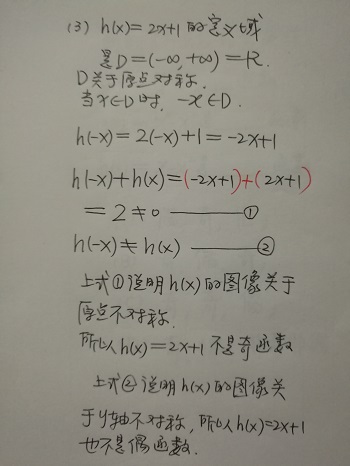 (3) h(x)=2x+1的定义域
是D=(-∞,+∞)=R.
D关于原点对称.
当x∈D时, -x∈D.
h(-x)=2(-x)+1=-2x+1
h(-x)+h(x)=(-2x+1)+(2x+1)
=2≠0 ——— ①
h(-x)≠h(x) ——— ②
上式①说明h(x)的图像关于
原点不对称.
所以h(x)=2x+1不是奇函数
上式②说明h(x)的图像关
于y轴不对称,所以h(x)=2x+1
也不是偶函数.